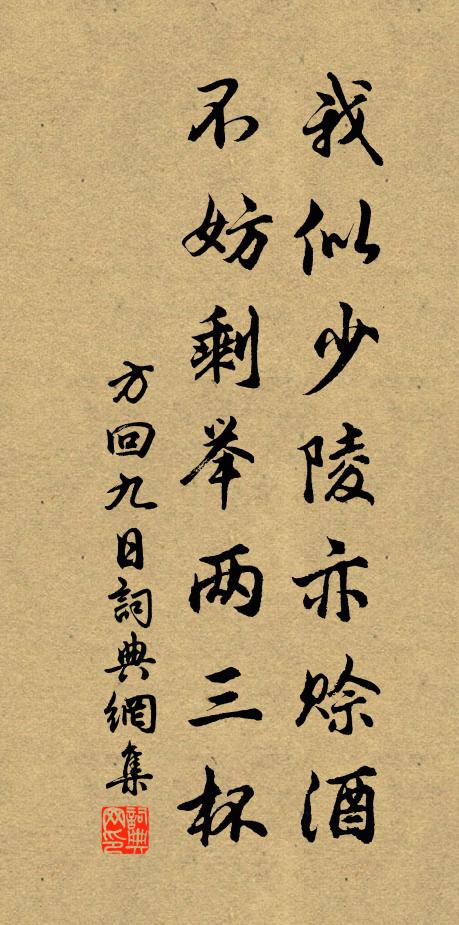 我似少陵亦赊酒
不妨剩举两三杯
方回九日詞典網集
詞典網印